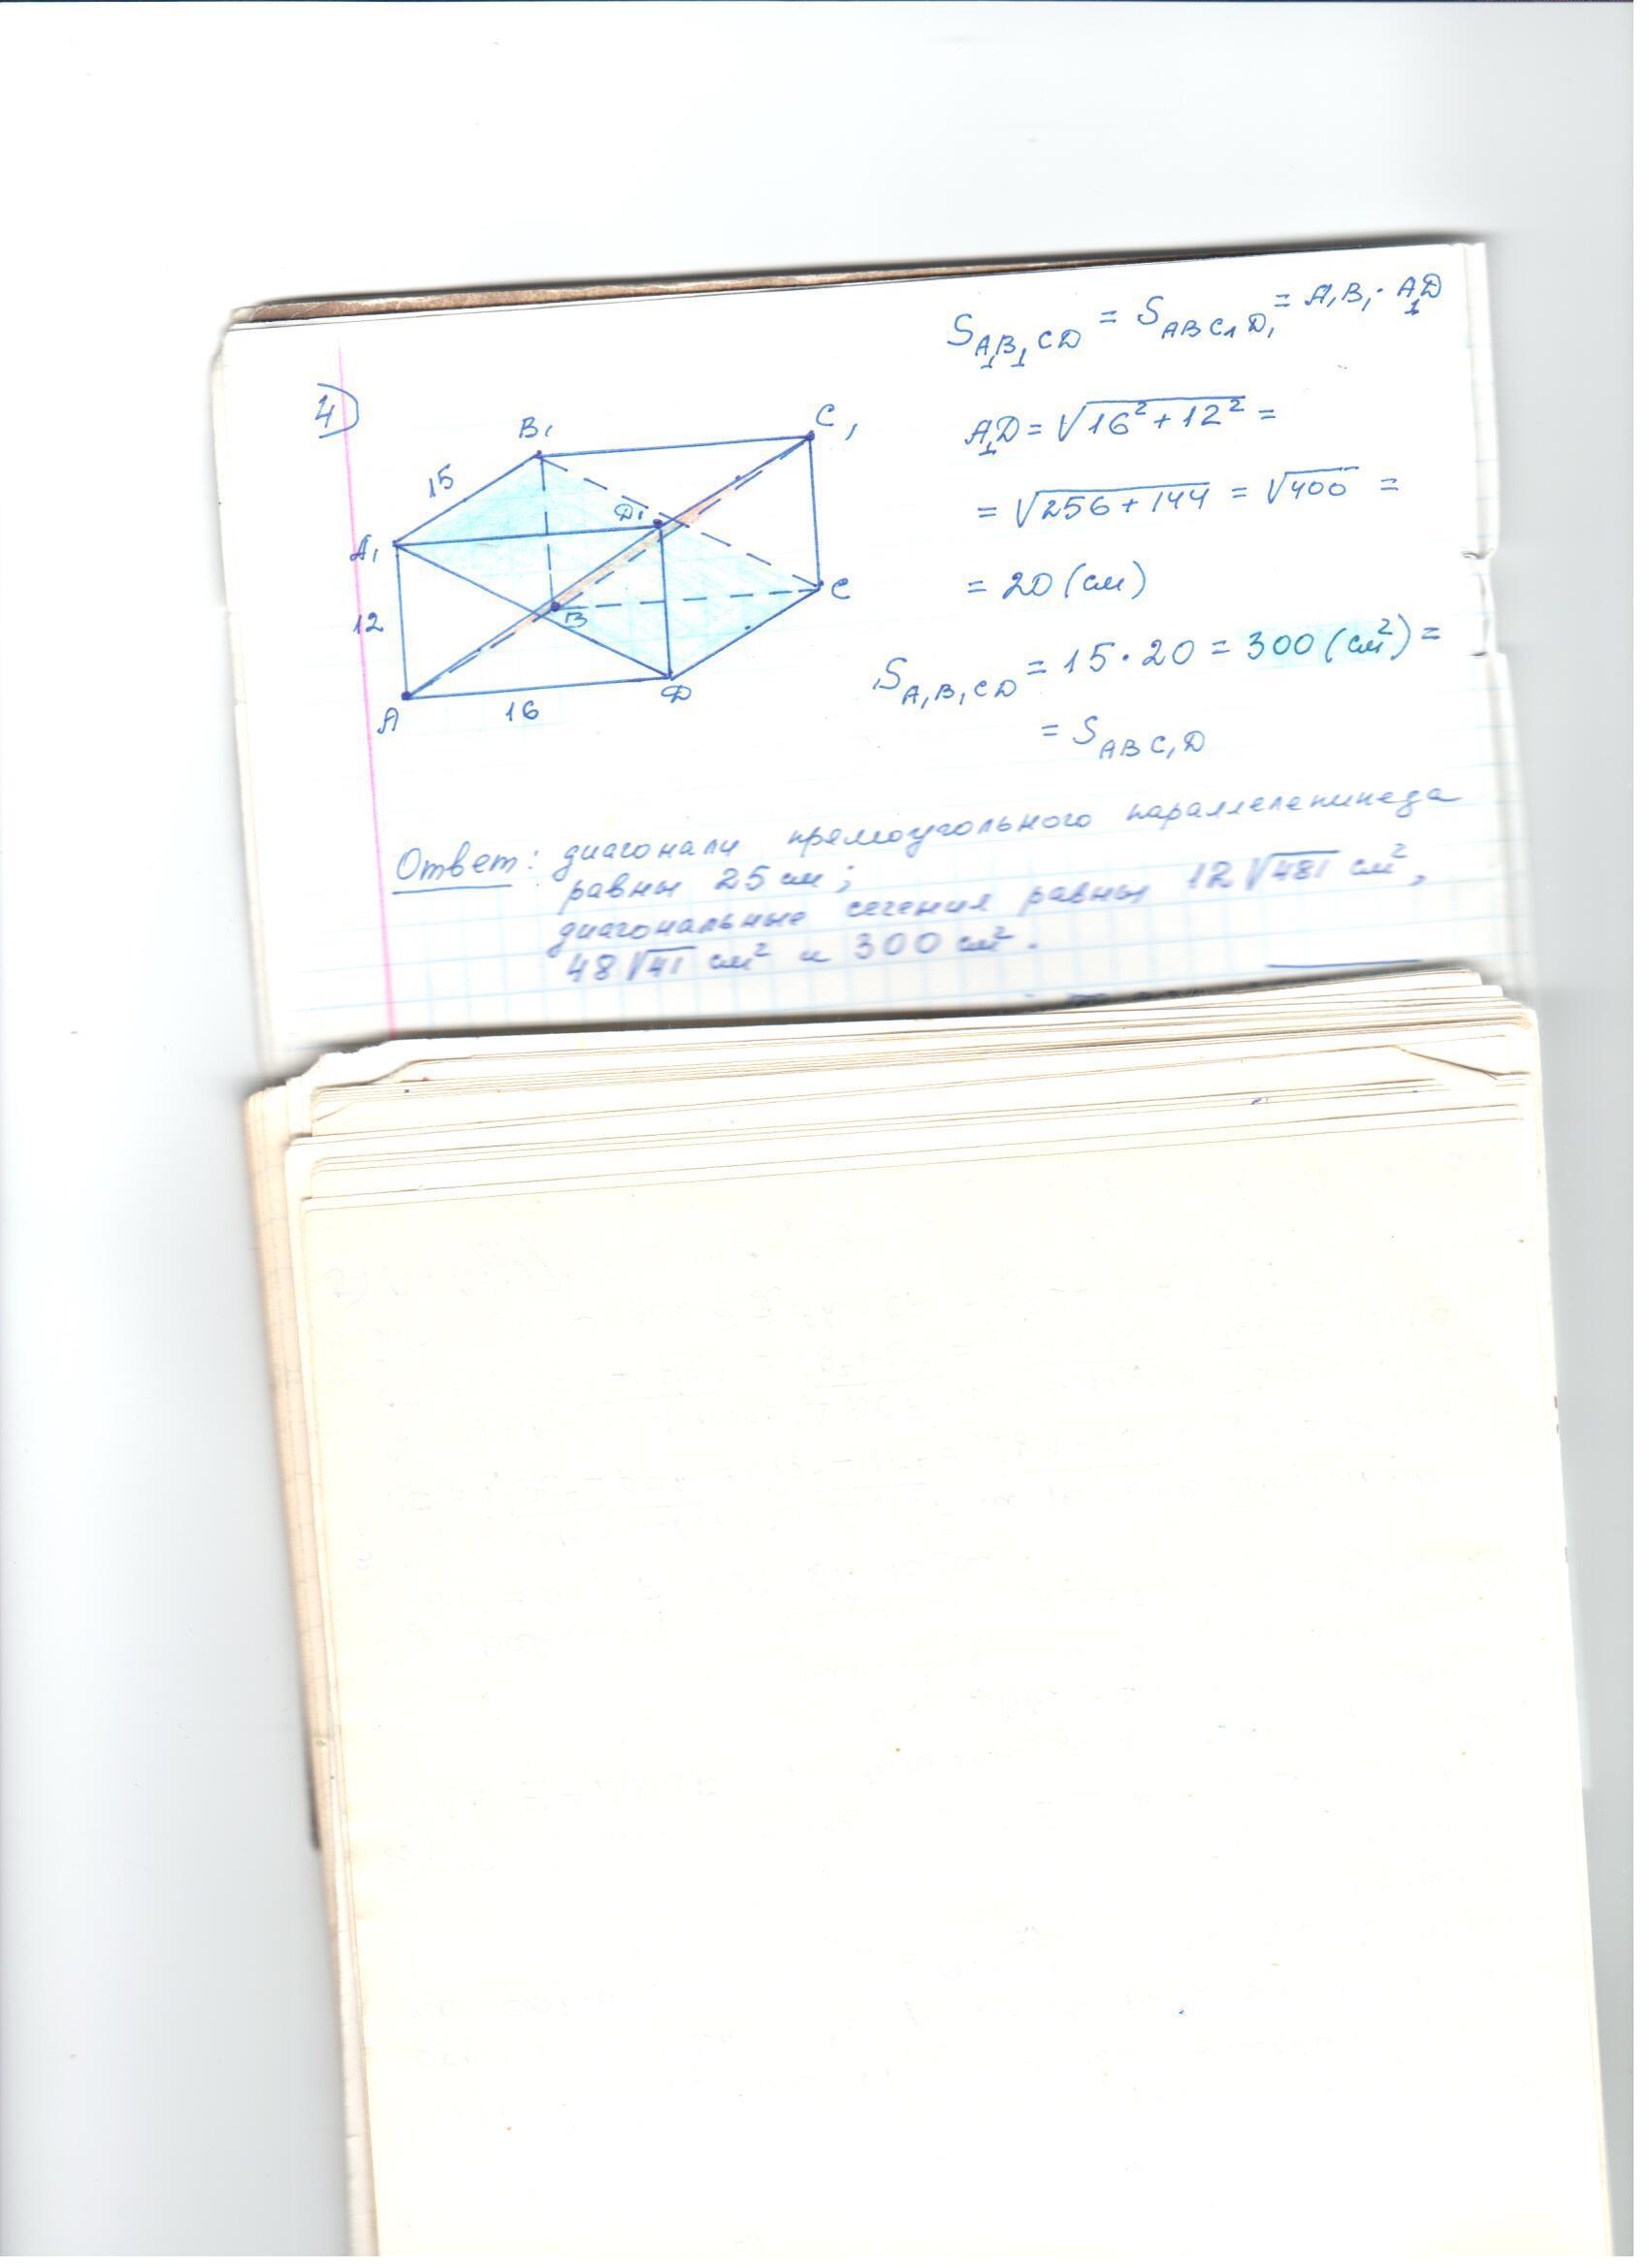 4)
B₁
C₁
15
D₁
A₁
12
B
C
A
16
D
S_A₁B₁CD = S_ABC₁D₁ = A₁B₁ · A₁D
A₁D = √16² + 12² =
= √256 + 144 = √400 =
= 20 (см)
S_A₁B₁CD = 15 · 20 = 300 (см²) =
= S_ABC₁D
Ответ: диагонали прямоугольного параллелепипеда
равны 25 см;
диагональные сечения равны 12√481 см²,
48√41 см² и 300 см².